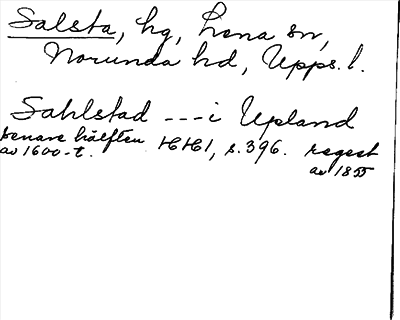 Salsta, hg, Lena sn,
Norunda hd, Upps. l.
Sahlstad --- i Upland
senare hälften HH1, s. 396. regest
av 1600-t. av 1855